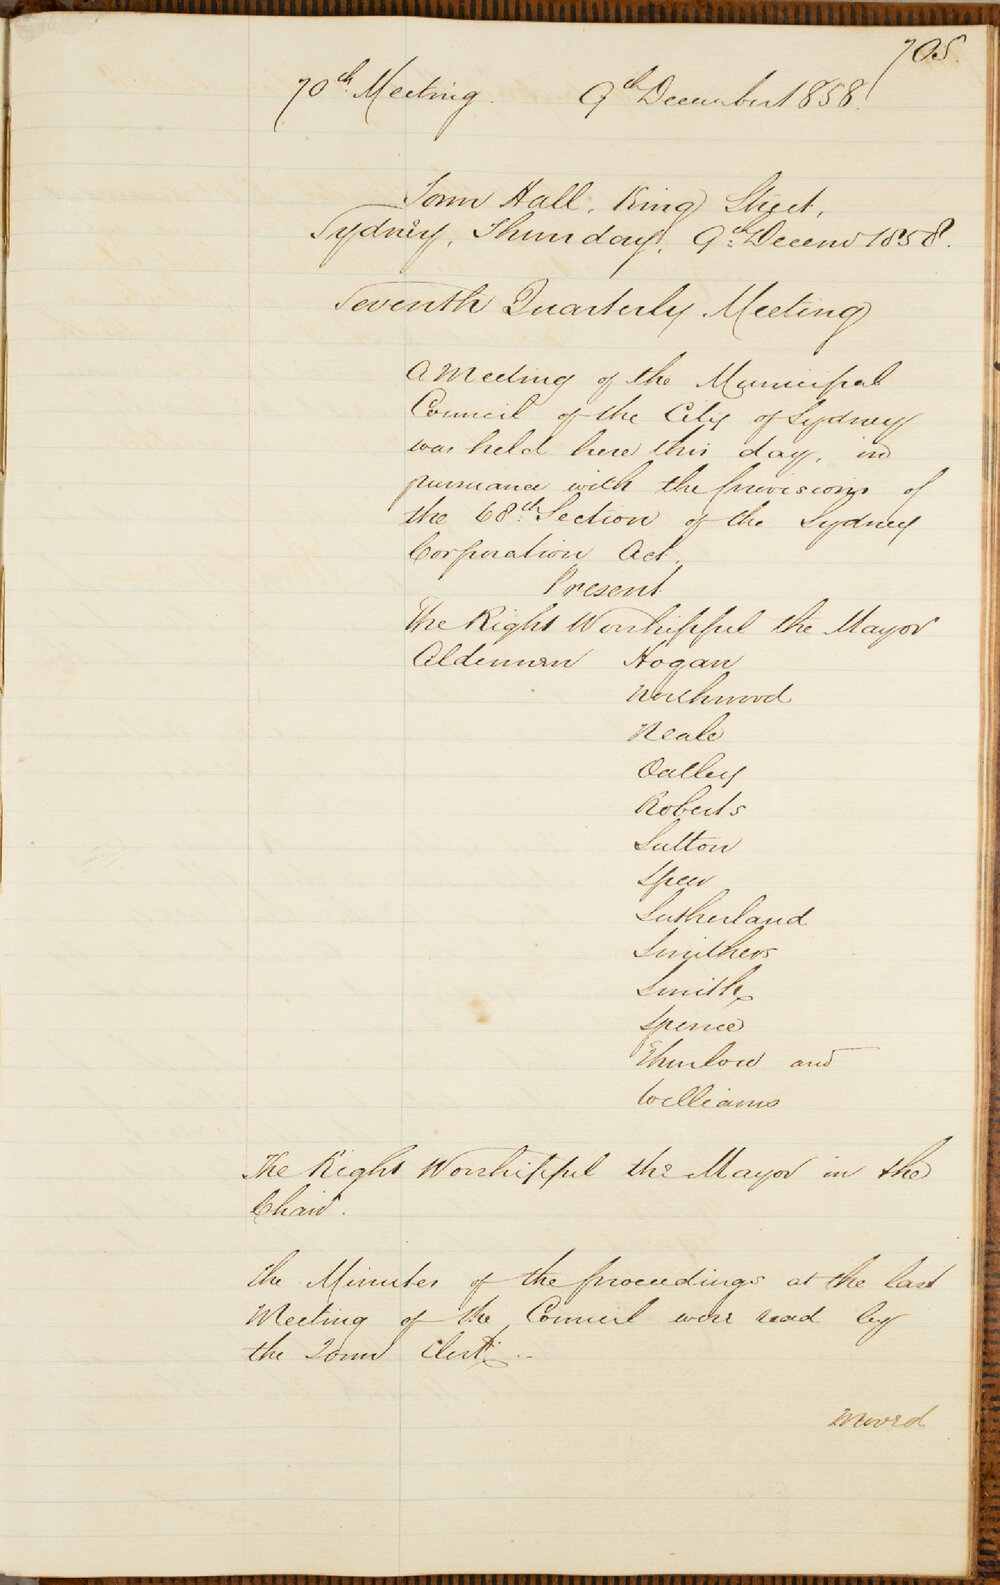 705.
70th Meeting. 9th December 1858.
Town Hall, King Street,
Sydney, Thursday, 9th Decemr 1858.
Seventh Quarterly Meeting
A Meeting of the Municipal
Council of the City of Sydney
was held here this day, in
pursuance with the provisions of
the 68th Section of the Sydney
Corporation Act.
Present
The Right Worshipful the Mayor
Aldermen Hogan
Northwood
Neale
Oatley
Roberts
Sutton
Speer
Sutherland
Smithers
Smith
Spence
Thurlow and
Williams
The Right Worshipful the Mayor in the
Chair.
The Minutes of the proceedings at the last
Meeting of the Council were read by
the Town Clerk.
Moved